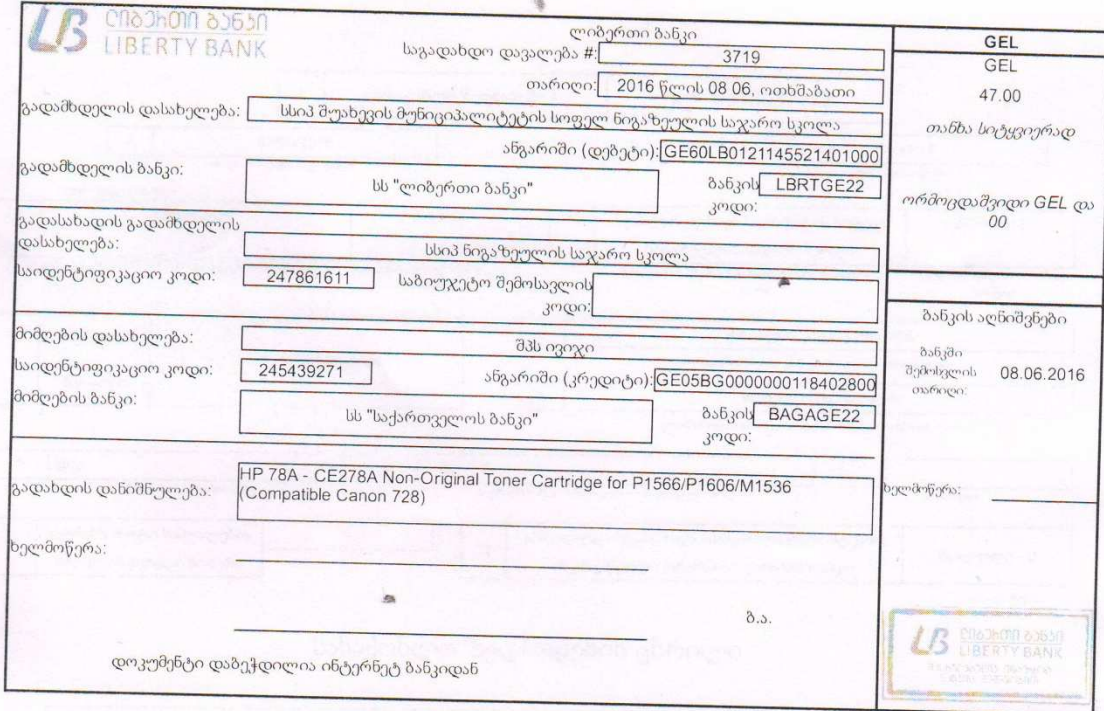 ლიბერთი ბანკი
LIBERTY BANK
ლიბერთი ბანკი
საგადახდო დავალება #: 3719
თარიღი: 2016 წლის 08 06, ოთხშაბათი
გადამხდელის დასახელება: სსიპ შუახევის მუნიციპალიტეტის სოფელ ნიგაზეულის საჯარო სკოლა
ანგარიში (დებეტი): GE60LB0121145521401000
გადამხდელის ბანკი: სს "ლიბერთი ბანკი" ბანკის კოდი: LBRTGE22
გადასახადის გადამხდელის
დასახელება: სსიპ ნიგაზეულის საჯარო სკოლა
საიდენტიფიკაციო კოდი: 247861611 საბიუჯეტო შემოსავლის
კოდი:
მიმღების დასახელება: შპს ივიჯი
საიდენტიფიკაციო კოდი: 245439271 ანგარიში (კრედიტი): GE05BG0000000118402800
მიმღების ბანკი: სს "საქართველოს ბანკი" ბანკის კოდი: BAGAGE22
გადახდის დანიშნულება: HP 78A - CE278A Non-Original Toner Cartridge for P1566/P1606/M1536
(Compatible Canon 728)
ხელმოწერა:
ბ.ა.
დოკუმენტი დაბეჭდილია ინტერნეტ ბანკიდან
GEL
GEL
47.00
თანხა სიტყვიერად
ორმოცდაშვიდი GEL და
00
ბანკის აღნიშვნები
ბანკში
შემოსვლის 08.06.2016
თარიღი:
ხელმოწერა:
ლიბერთი ბანკი
LIBERTY BANK